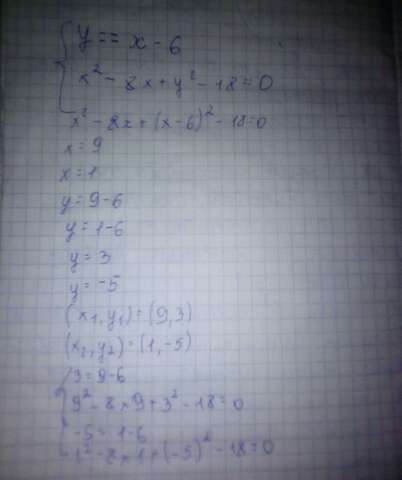 y == x - 6
x² - 8x + y² - 18 = 0
x² - 8x + (x - 6)² - 18 = 0
x = 9
x = 1
y = 9 - 6
y = 1 - 6
y = 3
y = -5
(x₁, y₁) = (9, 3)
(x₂, y₂) = (1, -5)
3 = 9 - 6
9² - 8 × 9 + 3² - 18 = 0
-5 = 1 - 6
1² - 8 × 1 + (-5)² - 18 = 0